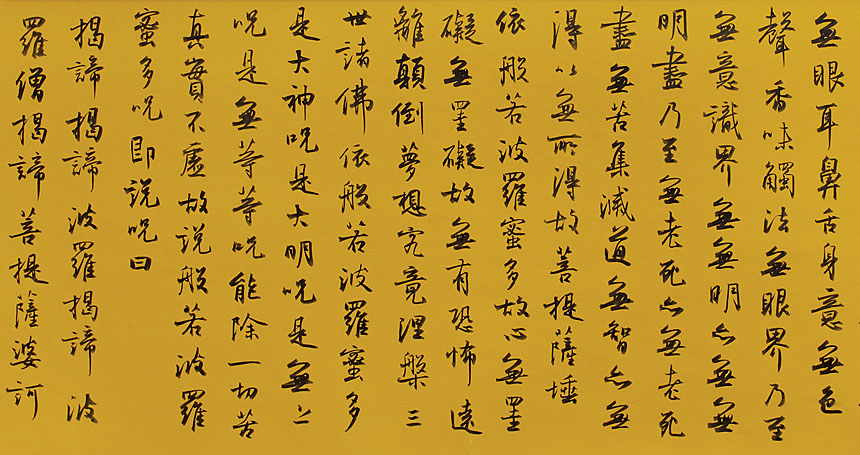 無眼耳鼻舌身意無色
聲香味觸法無眼界乃至
無意識界無無明亦無無
明盡乃至無老死亦無老死
盡無苦集滅道無智亦無
得以無所得故菩提薩埵
依般若波羅蜜多故心無罣
礙無罣礙故無有恐怖遠
離顛倒夢想究竟涅槃三
世諸佛依般若波羅蜜多
是大神咒是大明咒是無上
咒是無等等咒能除一切苦
真實不虛故說般若波羅
蜜多咒即說咒曰
揭諦揭諦波羅揭諦波
羅僧揭諦菩提薩婆訶